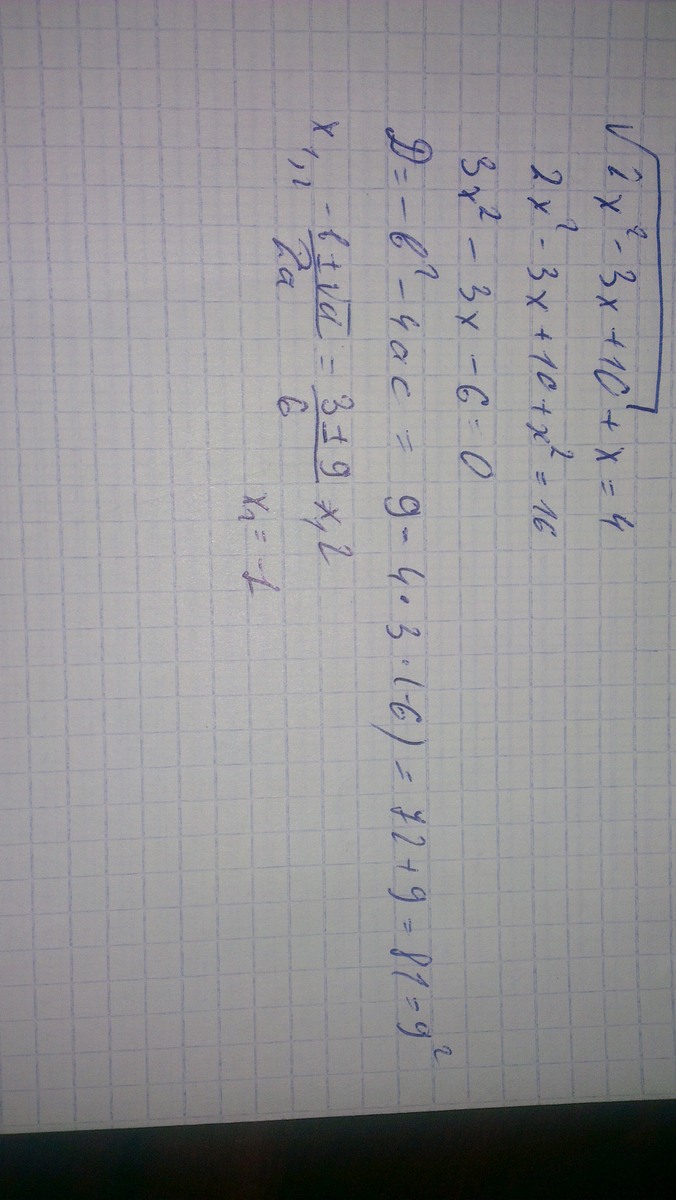 √2x² - 3x + 10 + x = 4
2x² - 3x + 10 + x² = 16
3x² - 3x - 6 = 0
D = - b² - 4ac = 9 - 4 · 3 · (-6) = 72 + 9 = 81 = 9²
x₁,₂ -b ± √d / 2a = 3 ± 9 / 6 x₁ 2
x₂ = -1